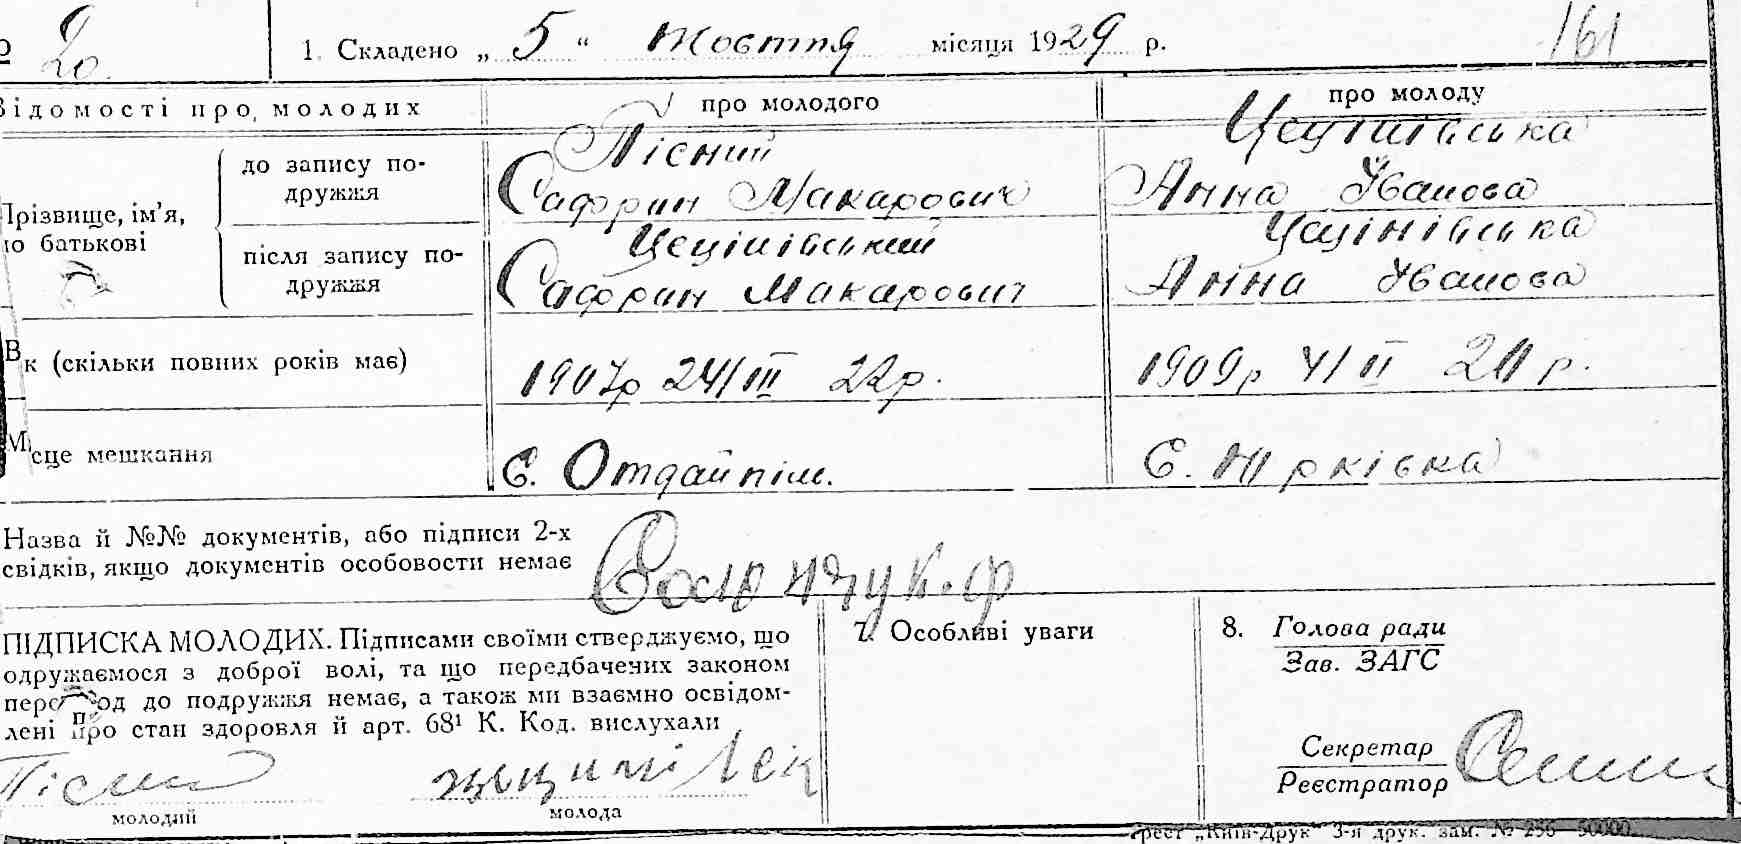 20
161
1. Складено „ 5 “ Жовтня місяця 1929 р.
Відомості про молодих
про молодого
про молоду
Прізвище, ім’я,
по батькові
до запису по-
дружжя
Пісний
Сафрин Макарович
Цецінівська
Анна Іванова
після запису по-
дружжя
Цецінівський
Сафрин Макарович
Цецінівська
Анна Іванова
Вік (скільки повних років має)
1907р 24/III 22р.
1909р 4/II 20 р.
Місце мешкання
С. Отдайпіль.
С. Юрківка
Назва й №№ документів, або підписи 2-х
свідків, якщо документів особовости немає
ПІДПИСКА МОЛОДИХ. Підписами своїми стверджуємо, що
одружаємося з доброї волі, та що передбачених законом
перешкод до подружжя немає, а також ми взаємно освідом-
лені про стан здоровля й арт. 68¹ К. Код. вислухали
Пісний
молодий
молода
7. Особливі уваги
8. Голова ради
Зав. ЗАГС
Секретар
Реєстратор
Трест „Київ-Друк“ 3-я друк. зам. № 256—50000